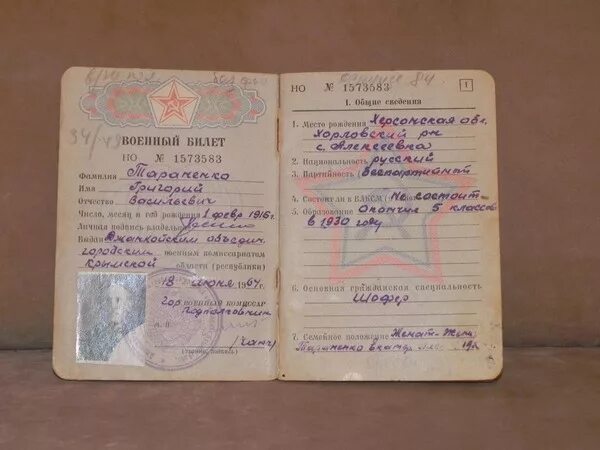 ВОЕННЫЙ БИЛЕТ
НО № 1573583
Фамилия Тараненко
Имя Григорий
Отчество Васильевич
Число, месяц и год рождения 1 февр 1916 г
Личная подпись владельца
Выдан Джанкойским объедин.
городским военным комиссариатом
Крымской области (республики)
18 июня 1964 г.
Гор военный комиссар
подполковник
М. П.
НО № 1573583
1
I. Общие сведения
1. Место рождения Херсонская обл.
Хорловский рн
с. Алексеевка
2. Национальность русский
3. Партийность Беспартийный
4. Состоит ли в ВЛКСМ Не состоит
5. Образование Окончил 5 классов
в 1930 году
6. Основная гражданская специальность
Шофер
7. Семейное положение Женат - Жена
Тараненко Екатер